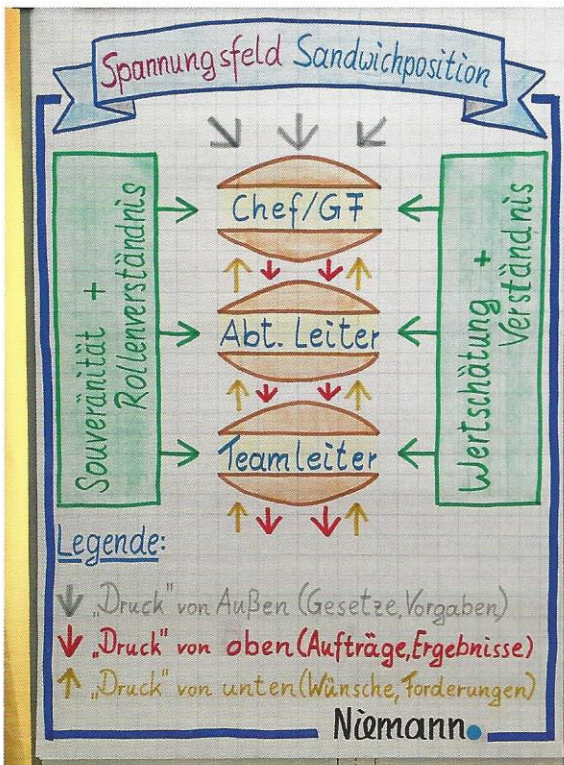 Spannungsfeld Sandwichposition
Souveränität +
Rollenverständnis
Chef/GF
Abt. Leiter
Teamleiter
Wertschätung +
Verständnis
Legende:
„Druck" von Außen (Gesetze, Vorgaben)
„Druck" von oben (Aufträge, Ergebnisse)
„Druck" von unten (Wünsche, Forderungen)
Niemann.